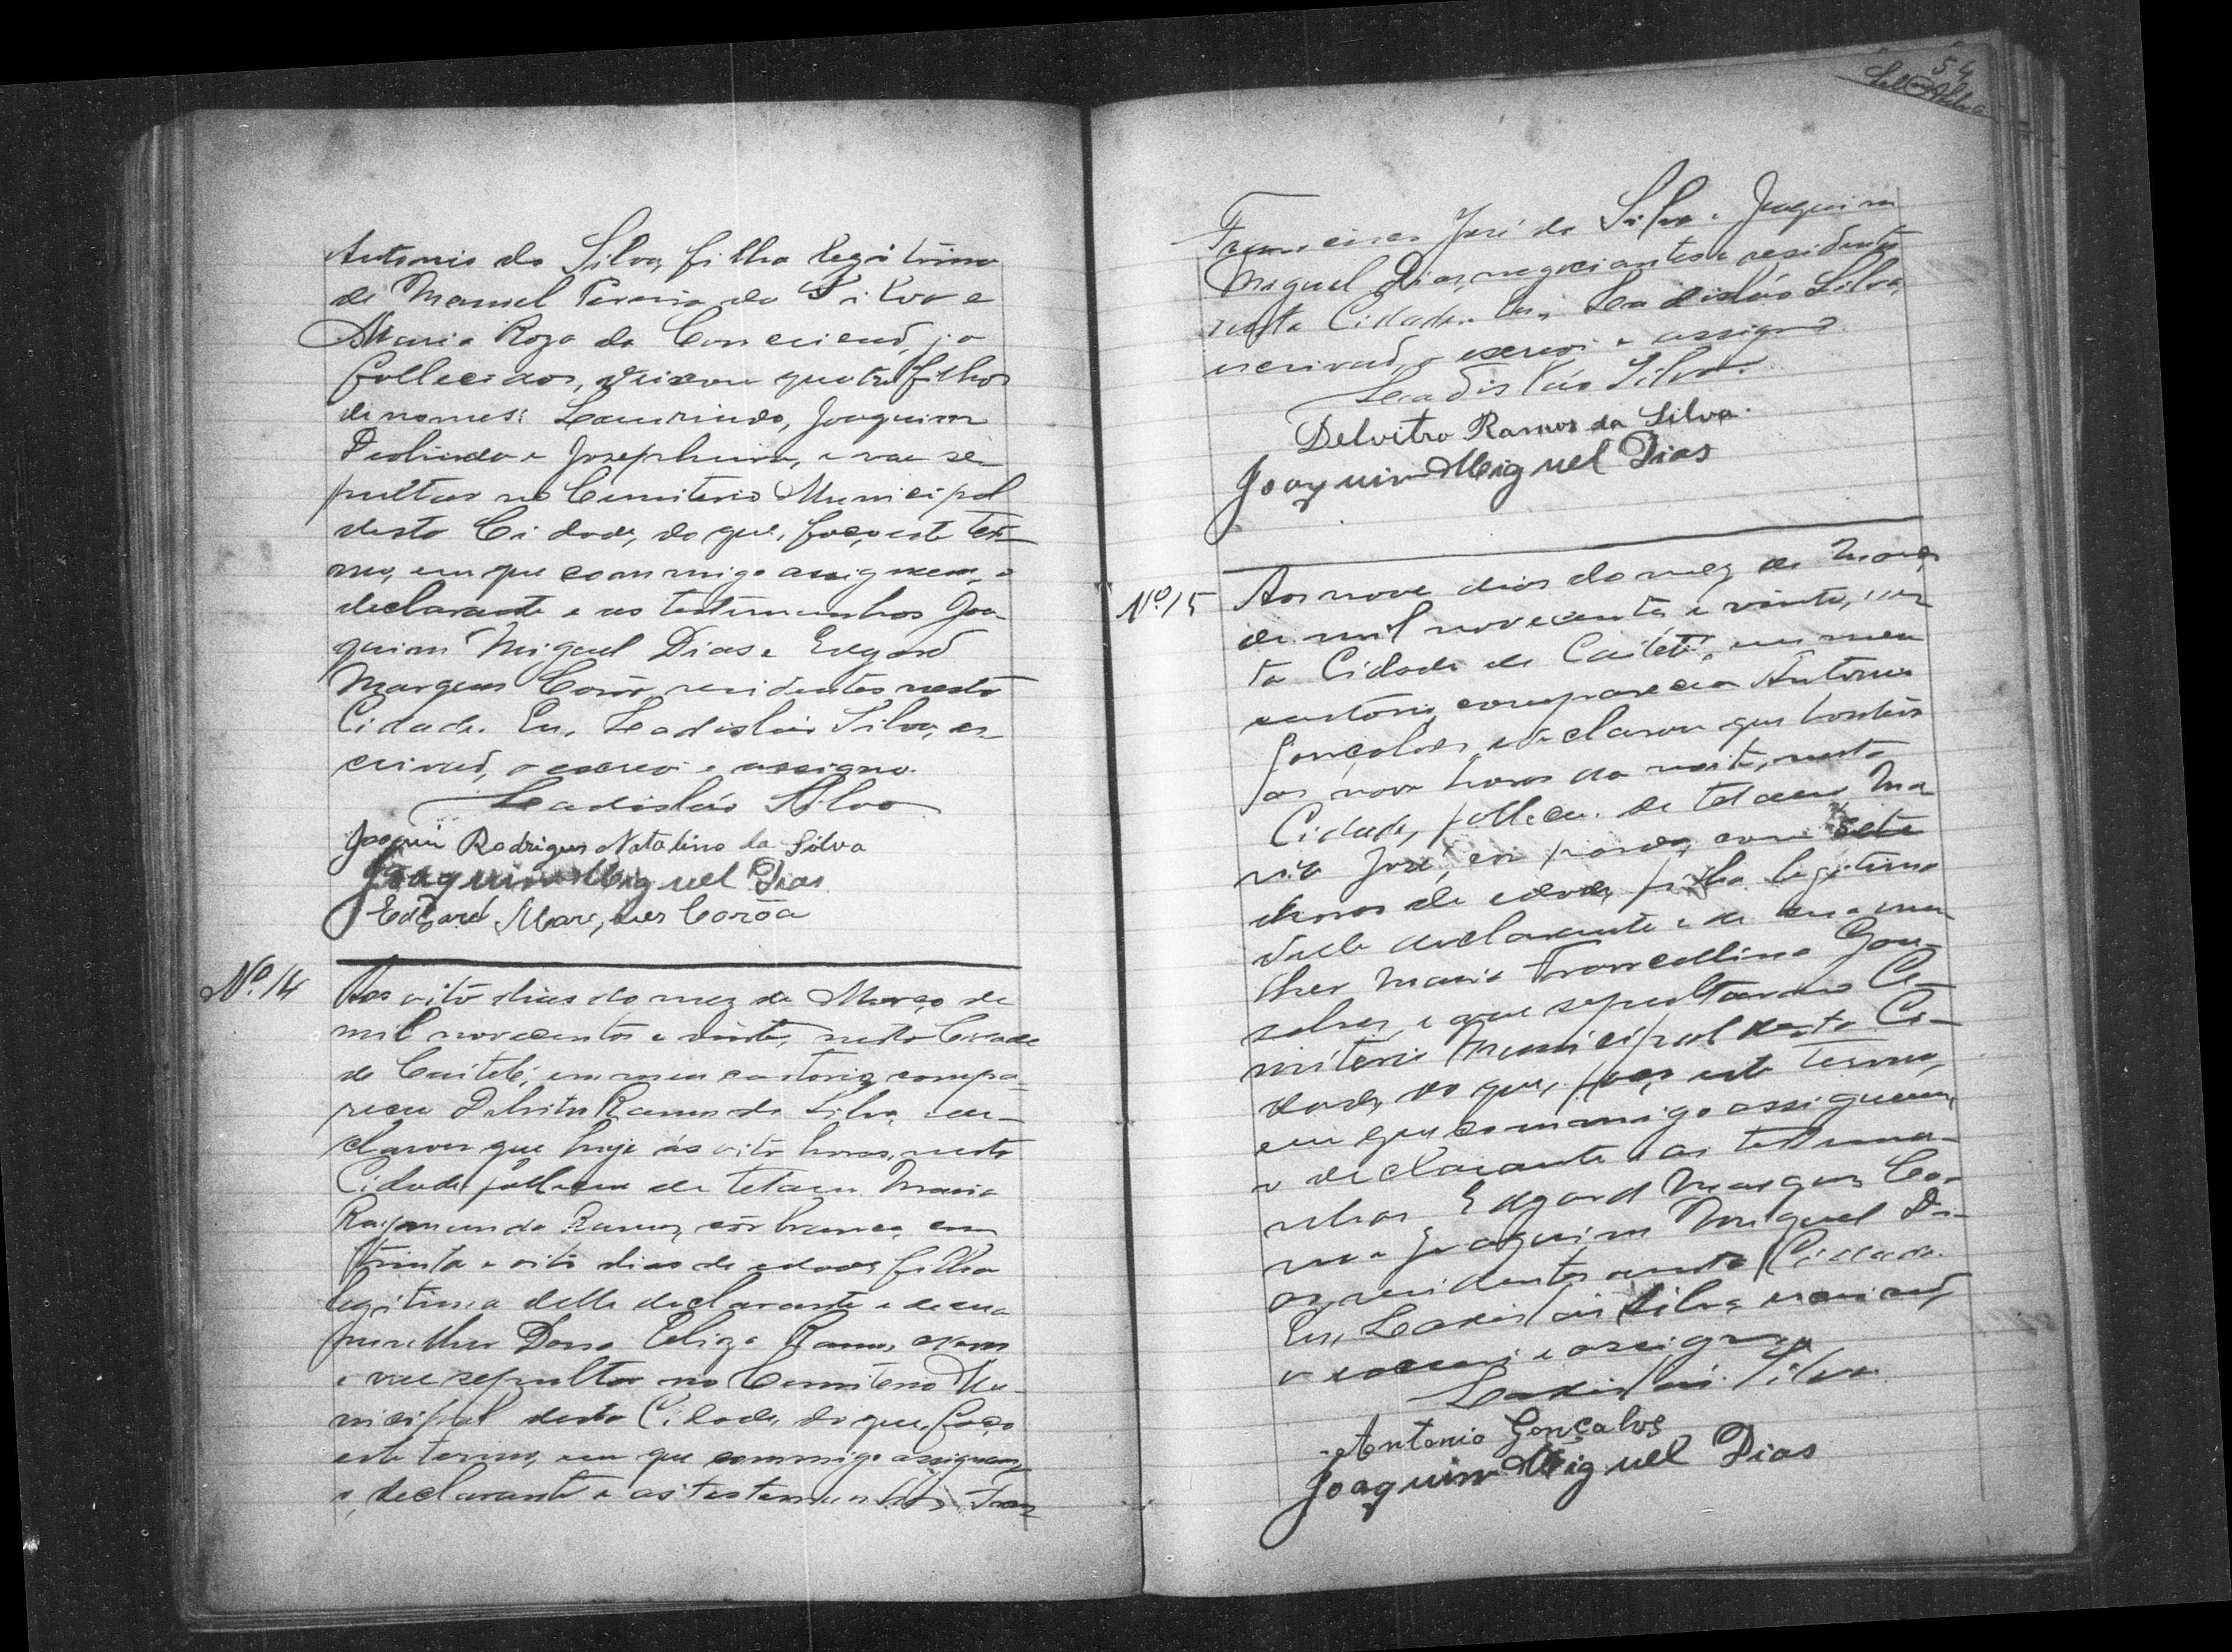 Antonio da Silva, filha legitima
de Manuel Pereira da Silva e
Maria Roza da Conceicaõ, ja
fallecidos, deixou quatro filhos
de nomes: Laurindo, Joaquim
Deolindo e Josephina, e vae se-
pultar no Cemiterio Municipal
desta Cidade, do que, faço este ter-
mo, em que commigo assignam, o
declarante e as testemunhas Joa-
quim Miguel Dias e Edgard
Marques Corôa, residentes nesta
Cidade. Eu, Leadisláo Silva, es-
crivaõ, o escrevi e assigno.
Leadisláo Silva
Joaquim Rodrigues Natalino da Silva
Joaquim Miguel Dias
Edgard Marques Corôa
Nº. 14
Aos oito dias do mez de Março de
mil novecentos e vinte, nesta Cidade
de Caiteté, em meu cartorio, compa-
receu Delvitro Ramos da Silva, e de-
clarou que hoje ás oito horas, nesta
Cidade falleceu de tetano Maria
Raymunda Ramos, côr branca, com
trinta e oito dias de edade, filha
legitima delle declarante e de sua
mulher Dona Eliza Ramos,
e vae sepultar no Cemiterio Mu-
nicipal desta Cidade, do que, faço
este termo, em que commigo assignam,
o declarante e as testemunhas Fran
54
Francisco José da Silva e Joaquim
Miguel Dias, negociantes e residentes
nesta Cidade. Eu, Leadisláo Silva,
escrivaõ, o escrevi e assigno.
Leadisláo Silva.
Delvitro Ramos da Silva.
Joaquim Miguel Dias
Nº 15
Aos nove dias do mez de Março
de mil novecentos e vinte, nes
ta Cidade de Caiteté, em meu
cartorio, compareceu Antonio
Gonçalves, e declarou que hontem
ás nove horas da noite, nesta
Cidade, falleceu de tetano Ma-
ria José, côr parda, com sete
annos de edade, filha legitima
delle declarante e de sua mu-
lher Maria Gon-
salves, e vae sepultar no Ce-
miterio Municipal desta Ci-
dade, do que, faço este termo,
em que commigo assignam,
o declarante e as testemu-
nhas Edgard Marques Co-
rôa e Joaquim Miguel Di-
as, residentes nesta Cidade.
Eu, Leadisláo Silva, escrivaõ,
o escrevi e assigno.
Leadisláo Silva.
Antonio Gonçalves
Joaquim Miguel Dias